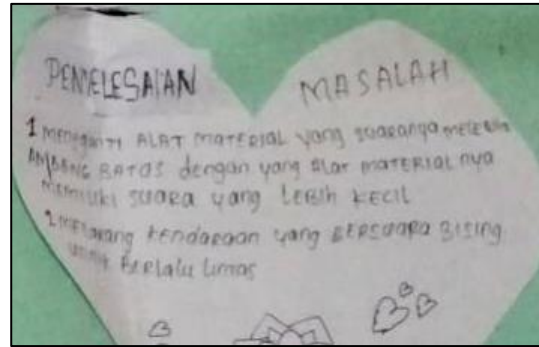 PENYELESAIAN MASALAH
1 MENGGANTI ALAT MATERIAL yang suaranya melebihi
AMBANG BATAS dengan yang alar MATERIALnya
memiliki suara yang LEBIH KECIL
2 melarang kendaraan yang BERSUARA BISING
untuk Berlalu Limas